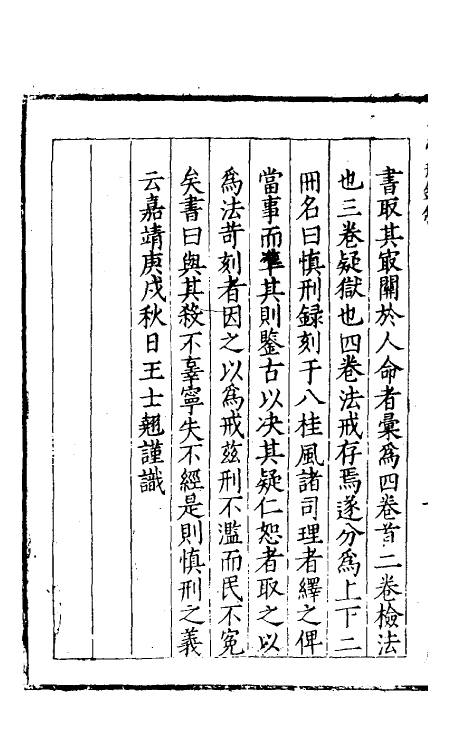 書取其㝡關於人命者彙爲四卷首二卷檢法
也三卷疑獄也四卷法戒存焉遂分爲上下二
冊名曰慎刑録刻于八桂風諸司理者繹之俾
當事而準其則鑒古以决其疑仁恕者取之以
爲法苛刻者因之以爲戒兹刑不濫而民不冤
矣書曰與其殺不辜寧失不經是則慎刑之義
云嘉靖庚戌秋日王士翹謹識